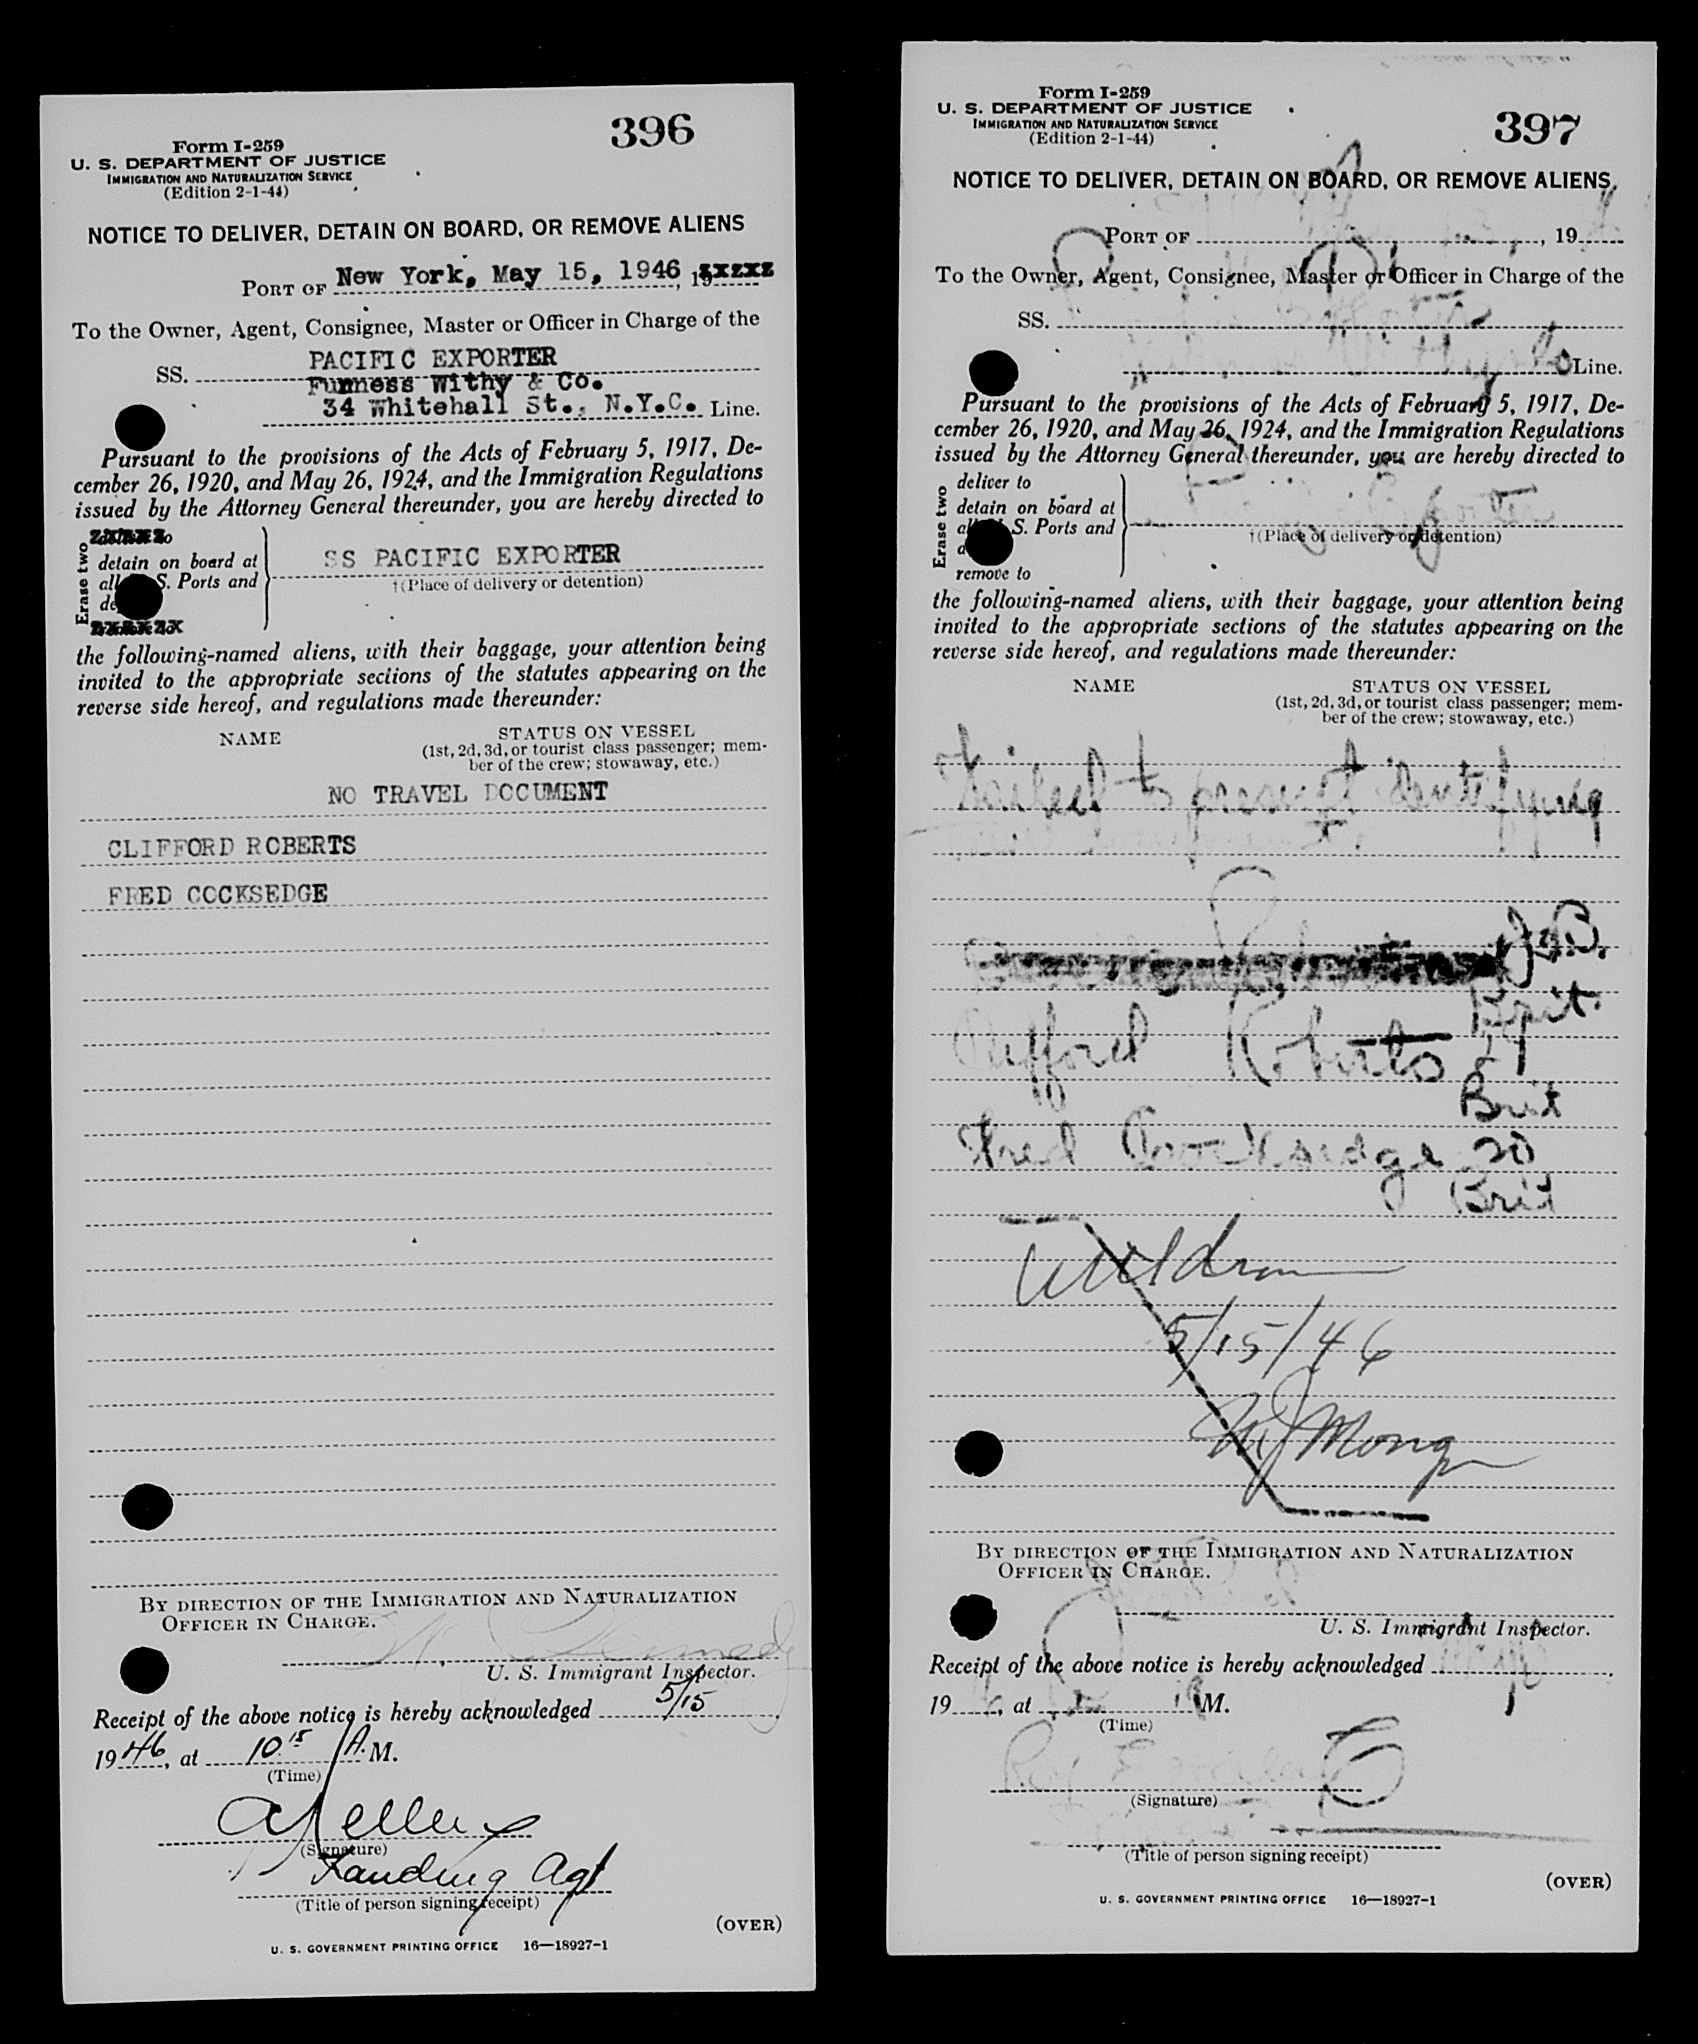 396
Form I-259
U. S. DEPARTMENT OF JUSTICE
IMMIGRATION AND NATURALIZATION SERVICE
(Edition 2-1-44)
NOTICE TO DELIVER, DETAIN ON BOARD, OR REMOVE ALIENS
PORT OF New York, May 15, 1946, 19
To the Owner, Agent, Consignee, Master or Officer in Charge of the
SS. PACIFIC EXPORTER
Furness Withy & Co.
34 Whitehall St., N.Y.C. Line.
Pursuant to the provisions of the Acts of February 5, 1917, De-
cember 26, 1920, and May 26, 1924, and the Immigration Regulations
issued by the Attorney General thereunder, you are hereby directed to
Erase two
detain on board at
all S. Ports and
SS PACIFIC EXPORTER
†(Place of delivery or detention)
the following-named aliens, with their baggage, your attention being
invited to the appropriate sections of the statutes appearing on the
reverse side hereof, and regulations made thereunder:
NAME
STATUS ON VESSEL
(1st, 2d, 3d, or tourist class passenger; mem-
ber of the crew; stowaway, etc.)
NO TRAVEL DOCUMENT
CLIFFORD ROBERTS
FRED COCKSEDGE
BY DIRECTION OF THE IMMIGRATION AND NATURALIZATION
OFFICER IN CHARGE.
U. S. Immigrant Inspector.
Receipt of the above notice is hereby acknowledged 5/15,
1946, at 10 15 A. M.
(Time)
(Signature)
Landing Agt
(Title of person signing receipt)
(OVER)
U. S. GOVERNMENT PRINTING OFFICE 16—18927-1
397
Form I-259
U. S. DEPARTMENT OF JUSTICE
IMMIGRATION AND NATURALIZATION SERVICE
(Edition 2-1-44)
NOTICE TO DELIVER, DETAIN ON BOARD, OR REMOVE ALIENS
PORT OF , 19
To the Owner, Agent, Consignee, Master or Officer in Charge of the
SS. Exporter
Line.
Pursuant to the provisions of the Acts of February 5, 1917, De-
cember 26, 1920, and May 26, 1924, and the Immigration Regulations
issued by the Attorney General thereunder, you are hereby directed to
Erase two
deliver to
detain on board at
S. Ports and
remove to
Exporter
†(Place of delivery or detention)
the following-named aliens, with their baggage, your attention being
invited to the appropriate sections of the statutes appearing on the
reverse side hereof, and regulations made thereunder:
NAME
STATUS ON VESSEL
(1st, 2d, 3d, or tourist class passenger; mem-
ber of the crew; stowaway, etc.)
Failed to present identifying
Brit.
Clifford Roberts 21
Brit
Fred Cocksedge 20
Brit
5/15/46
BY DIRECTION OF THE IMMIGRATION AND NATURALIZATION
OFFICER IN CHARGE.
U. S. Immigrant Inspector.
Receipt of the above notice is hereby acknowledged
19 , at M.
(Time)
(Signature)
(Title of person signing receipt)
(OVER)
U. S. GOVERNMENT PRINTING OFFICE 16—18927-1